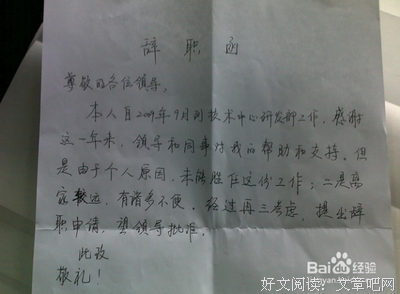 辞职函
尊敬的各位领导,
本人自2009年9月到技术中心研发部工作,感谢
这一年来,领导和同事对我的帮助和支持。但
是由于个人原因,未能胜任这份工作;二是离
家较远,有诸多不便。经过再三考虑,提出辞
职申请,望领导批准。
此致
敬礼!
Baidu经验
好文阅读:文章吧网